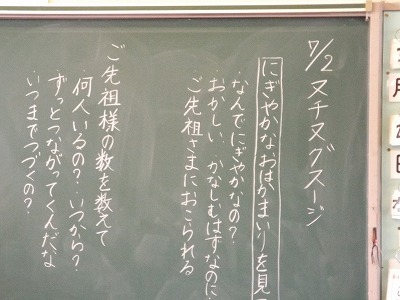 7/2 ヌチヌグスージ
にぎやかなおはかまいりを見
なんでにぎやかなの?
おかしい かなしむはずなのに
ご先祖さまにおこられる
ご先祖様の数を数えて
何人いるの? いつから?
ずっとつながってくんだな
いつまでつづくの?
月
日